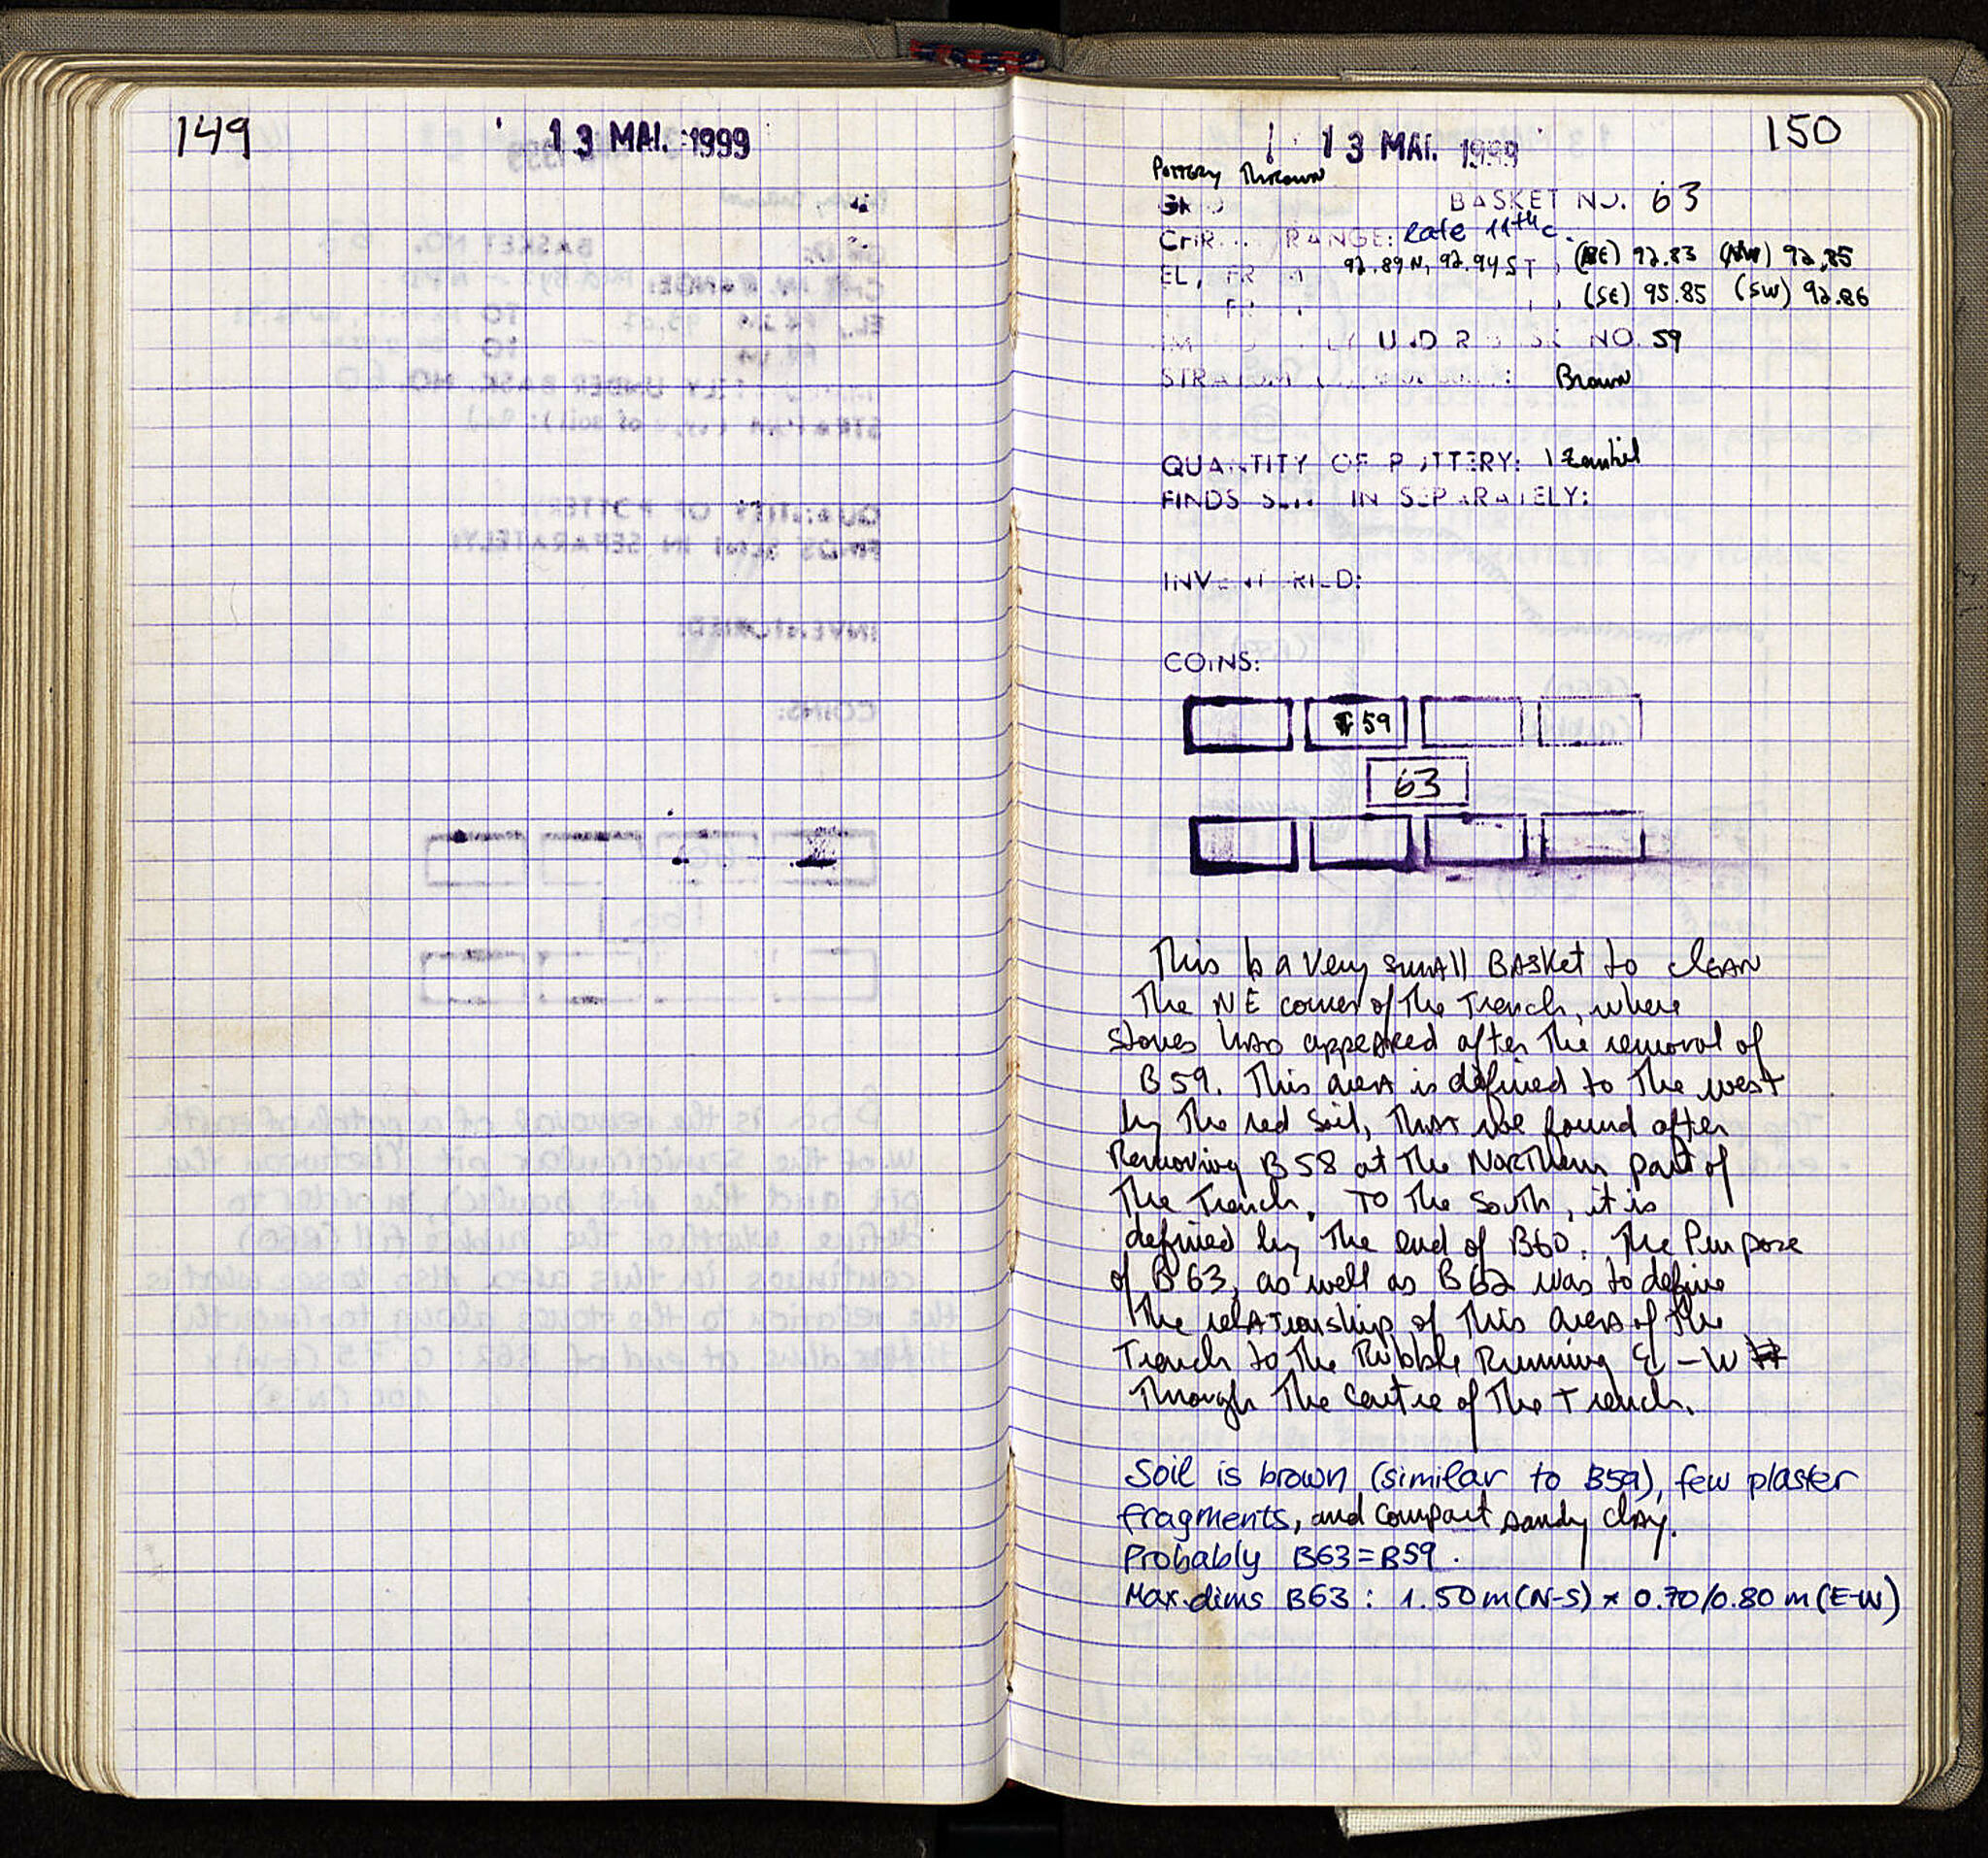 149
13 MAI. 1999
13 MAI. 1999
150
Pottery Thrown
BASKET NO. 63
RANGE: Late 11th c.
EL, FR 92.89 N, 92.94 S T (NE) 92.83 (NW) 92.85
FR (SE) 95.85 (SW) 92.86
NO. 59
STRATUM Brown
QUANTITY OF POTTERY: 1 zembil
FINDS SENT IN SEPARATELY:
INVENTORIED:
COINS:
59
63
This is a very small Basket to clean
The NE corner of The Trench, where
stones has appeared after The removal of
B59. This area is defined to The west
by The red soil, that we found after
Removing B58 at The Northern part of
The Trench. To The South, it is
defined by The end of B60. The Purpose
of B63, as well as B62 was to define
The relationship of This area of the
Trench to The Rubble Running E-W
Through The Centre of The Trench.
Soil is brown (similar to B59), few plaster
fragments, and compact sandy clay.
Probably B63=B59.
Max.dims B63 : 1.50m(N-S) x 0.70/0.80 m (E-W)